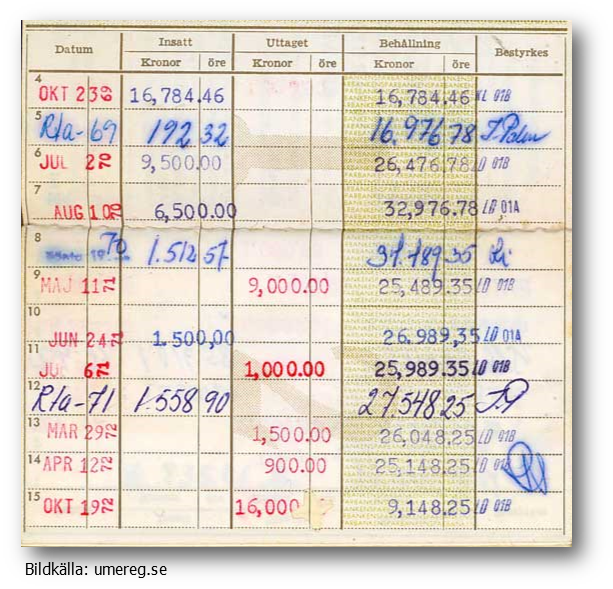 Datum Insatt Uttaget Behållning Bestyrkes
Kronor öre Kronor öre Kronor öre
4 OKT 2 69 16,784.46 16,784.46 01B
5 R/a-69 192 32 16,976 78
6 JUL 2 70 9,500.00 26,476.78 LD 01B
7 AUG 10 70 6,500.00 32,976.78 LD 01A
8 70 1.512 57 35
9 MAJ 11 71 9,000.00 25,489.35 LD 01B
10 JUN 24 71 1.500,00 26.989,35 LD 01A
11 6 71 1,000.00 25,989.35 LD 01B
12 R/a-71 1.558 90 27.548 25
13 MAR 29 72 1,500.00 26,048.25 LD 01B
14 APR 12 72 900.00 25,148.25 LD 01B
15 OKT 19 72 16,000 9,148.25 LD 01B
Bildkälla: umereg.se